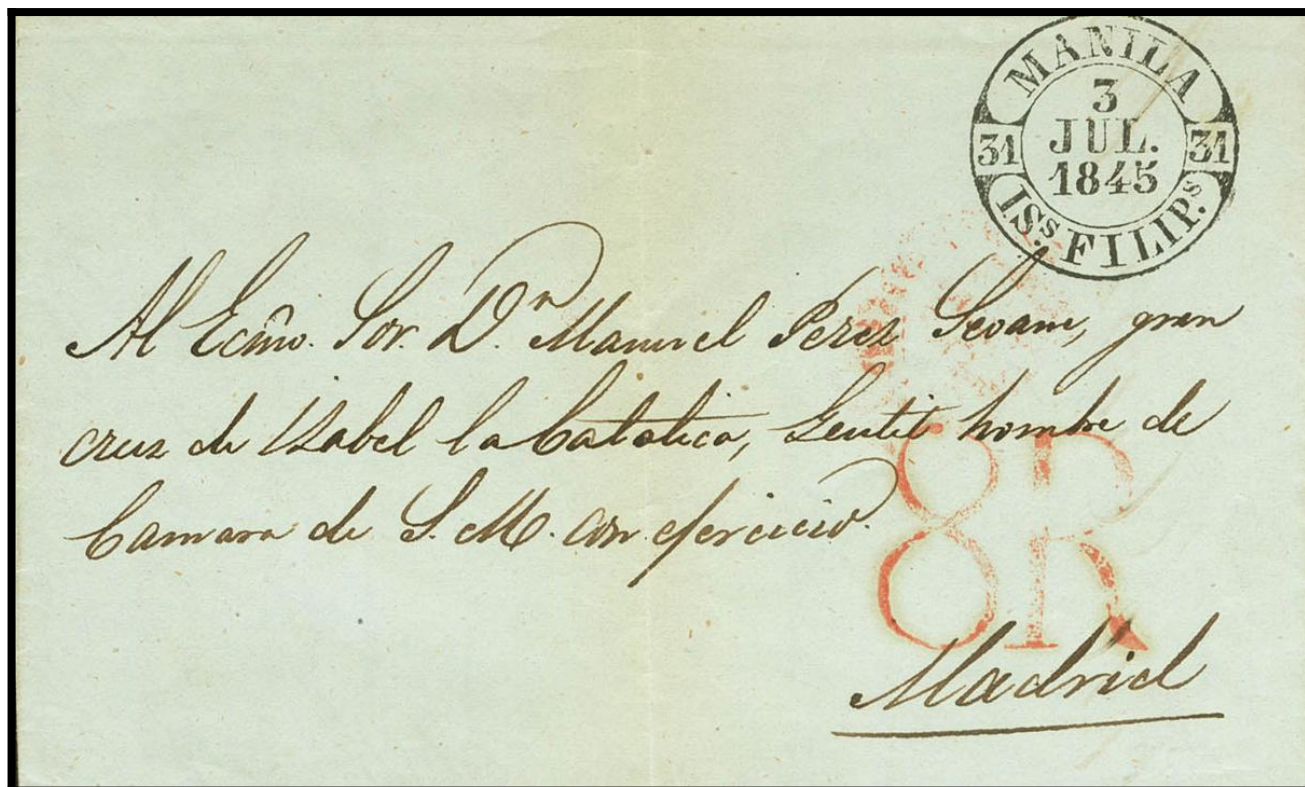 MANILA
3
JUL.
1845
31 31
IS.s FILIP.s
Al Ecmo. Sor. Dn. Manuel Perez Seoane, gran
cruz de Izabel la Catolica, Gentil hombre de
Camara de S. M. con ejercicio.
8R
Madrid